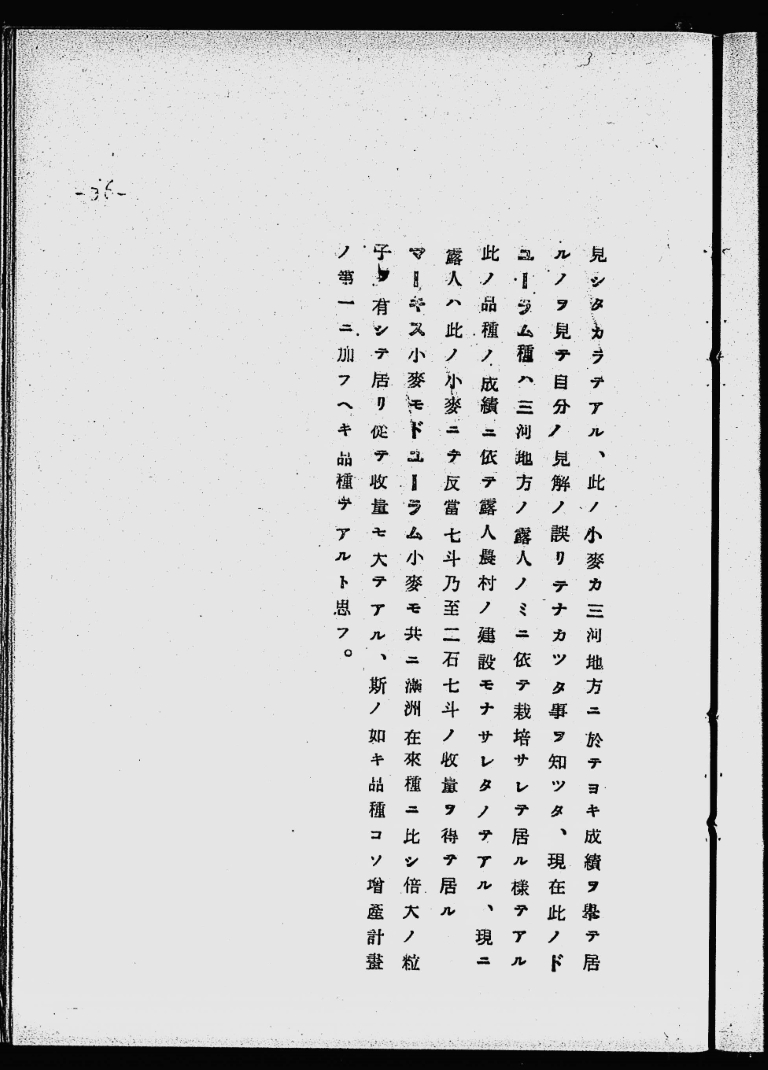 3
-36-
見シタカラテアル、此ノ小麥カ三河地方ニ於テヨキ成績ヲ擧テ居
ルノヲ見テ自分ノ見解ノ誤リテナカツタ事ヲ知ツタ、現在此ノド
ユーラム種ハ三河地方ノ露人ノミニ依テ栽培サレテ居ル樣テアル
此ノ品種ノ成績ニ依テ露人農村ノ建設モナサレタノテアル、現ニ
露人ハ此ノ小麥ニテ反當七斗乃至二石七斗ノ收量ヲ得テ居ル
マーキス小麥モドユーラム小麥モ共ニ滿洲在來種ニ比シ倍大ノ粒
子ヲ有シテ居リ從テ收量モ大テアル、斯ノ如キ品種コソ增產計畫
ノ第一ニ加フヘキ品種テアルト思フ。